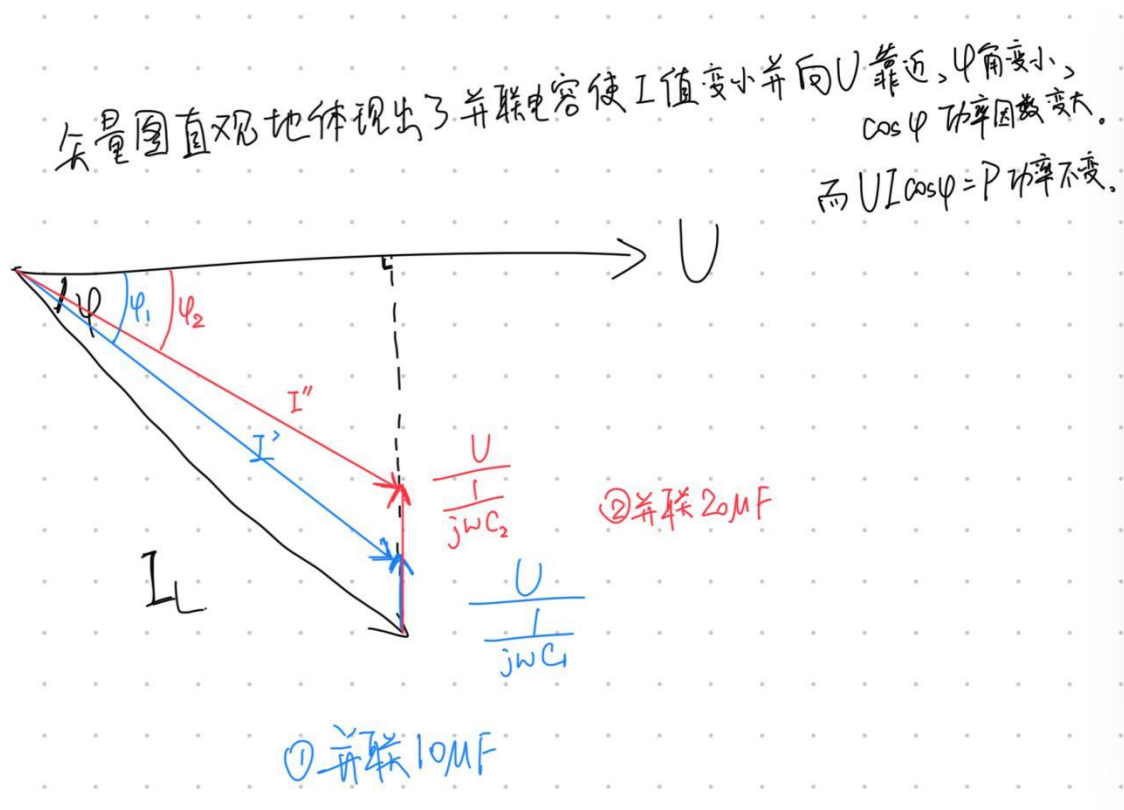 矢量图直观地体现出了并联电容使I值变小并向U靠近，φ角变小，
cosφ 功率因数变大。
而UIcosφ=P功率不变。
U
φ
φ₁
φ₂
I''
I'
U
1
jωC₂
②并联20μF
I_L
U
1
jωC₁
①并联10μF